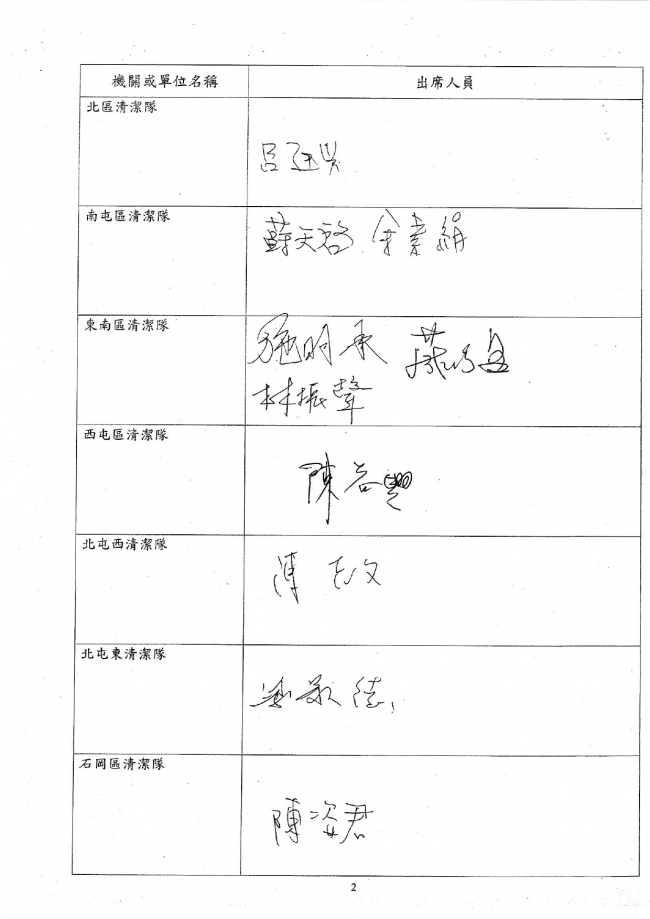 機關或單位名稱 出席人員
北區清潔隊
呂
南屯區清潔隊
蘇天啓 余素絹
東南區清潔隊
施明承
林振聲
西屯區清潔隊
陳
北屯西清潔隊
陳志文
北屯東清潔隊
石岡區清潔隊
陳姿君
2